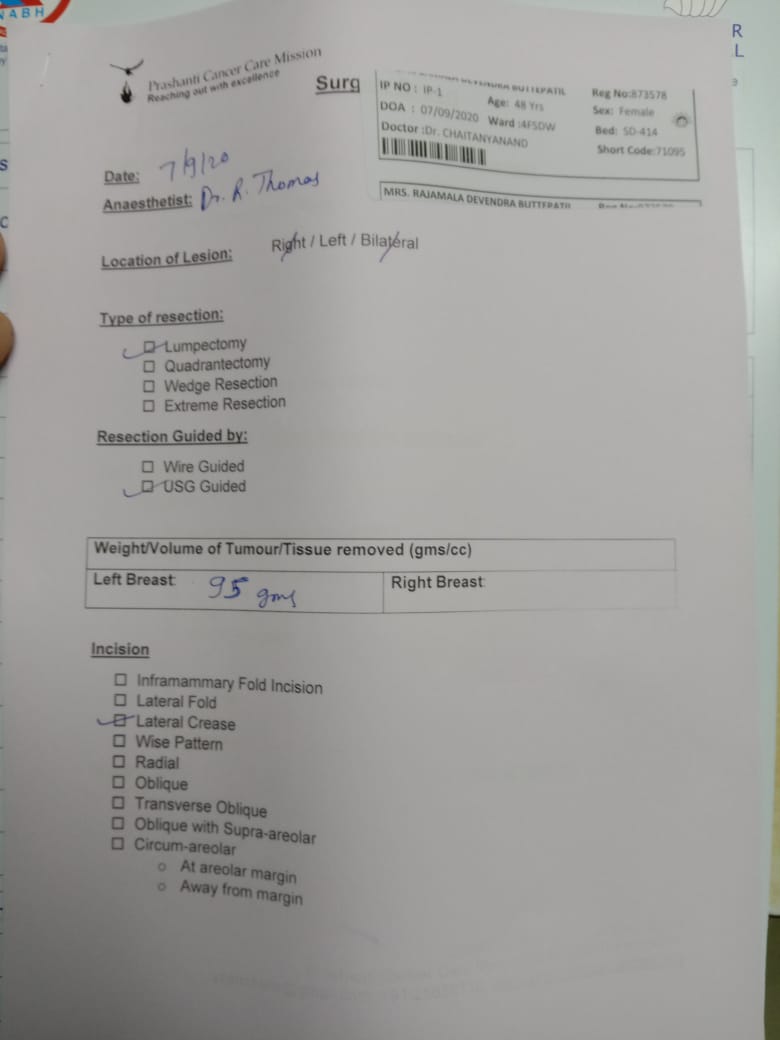 NABH
R
L
Prashanti Cancer Care Mission
Reaching out with excellence
Surg
IP NO : IP-1
Age: 48 Yrs
Reg No:873578
DOA : 07/09/2020
Ward :4FSDW
Sex: Female
Doctor :Dr. CHAITANYANAND
Bed: SD-414
Short Code:71095
MRS. RAJAMALA DEVENDRA BUTTEPATIL
Date: 7/9/20
Anaesthetist: Dr. R. Thomas
Location of Lesion: Right / Left / Bilateral
Type of resection:
☐ Lumpectomy
☐ Quadrantectomy
☐ Wedge Resection
☐ Extreme Resection
Resection Guided by:
☐ Wire Guided
☐ USG Guided
Weight/Volume of Tumour/Tissue removed (gms/cc)
Left Breast: 95 gms
Right Breast:
Incision
☐ Inframammary Fold Incision
☐ Lateral Fold
☐ Lateral Crease
☐ Wise Pattern
☐ Radial
☐ Oblique
☐ Transverse Oblique
☐ Oblique with Supra-areolar
☐ Circum-areolar
o At areolar margin
o Away from margin